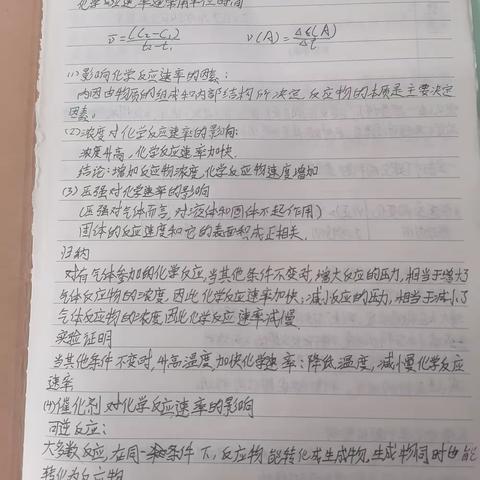 化学反应速率通常用单位时间
v̄=(C₂-C₁)/(t₂-t₁)  v(A)=Δc(A)/Δt
(1)影响化学反应速率的因素:
内因由物质的组成和内部结构所决定,反应物的本质是主要决定
因素。
(2)浓度对化学反应速率的影响:
浓度升高,化学反应速率加快.
结论:增加反应物浓度,化学反应物速度增加
(3)压强对化学速率的影响
(压强对气体而言,对液体和固体不起作用)
固体的反应速度和它的表面积成正相关.
归纳
对有气体参加的化学反应,当其他条件不变时,增大反应的压力,相当于增大了
气体反应物的浓度,因此化学反应速率加快;减小反应的压力,相当于减小了
气体反应物的浓度,因此化学反应速率减慢.
实验证明
当其他条件不变时,升高温度加快化学速率;降低温度,减慢化学反应
速率
(4)催化剂对化学反应速率的影响
可逆反应:
大多数反应,在同一条件下,反应物能转化成生成物,生成物同时也能
转化为反应物